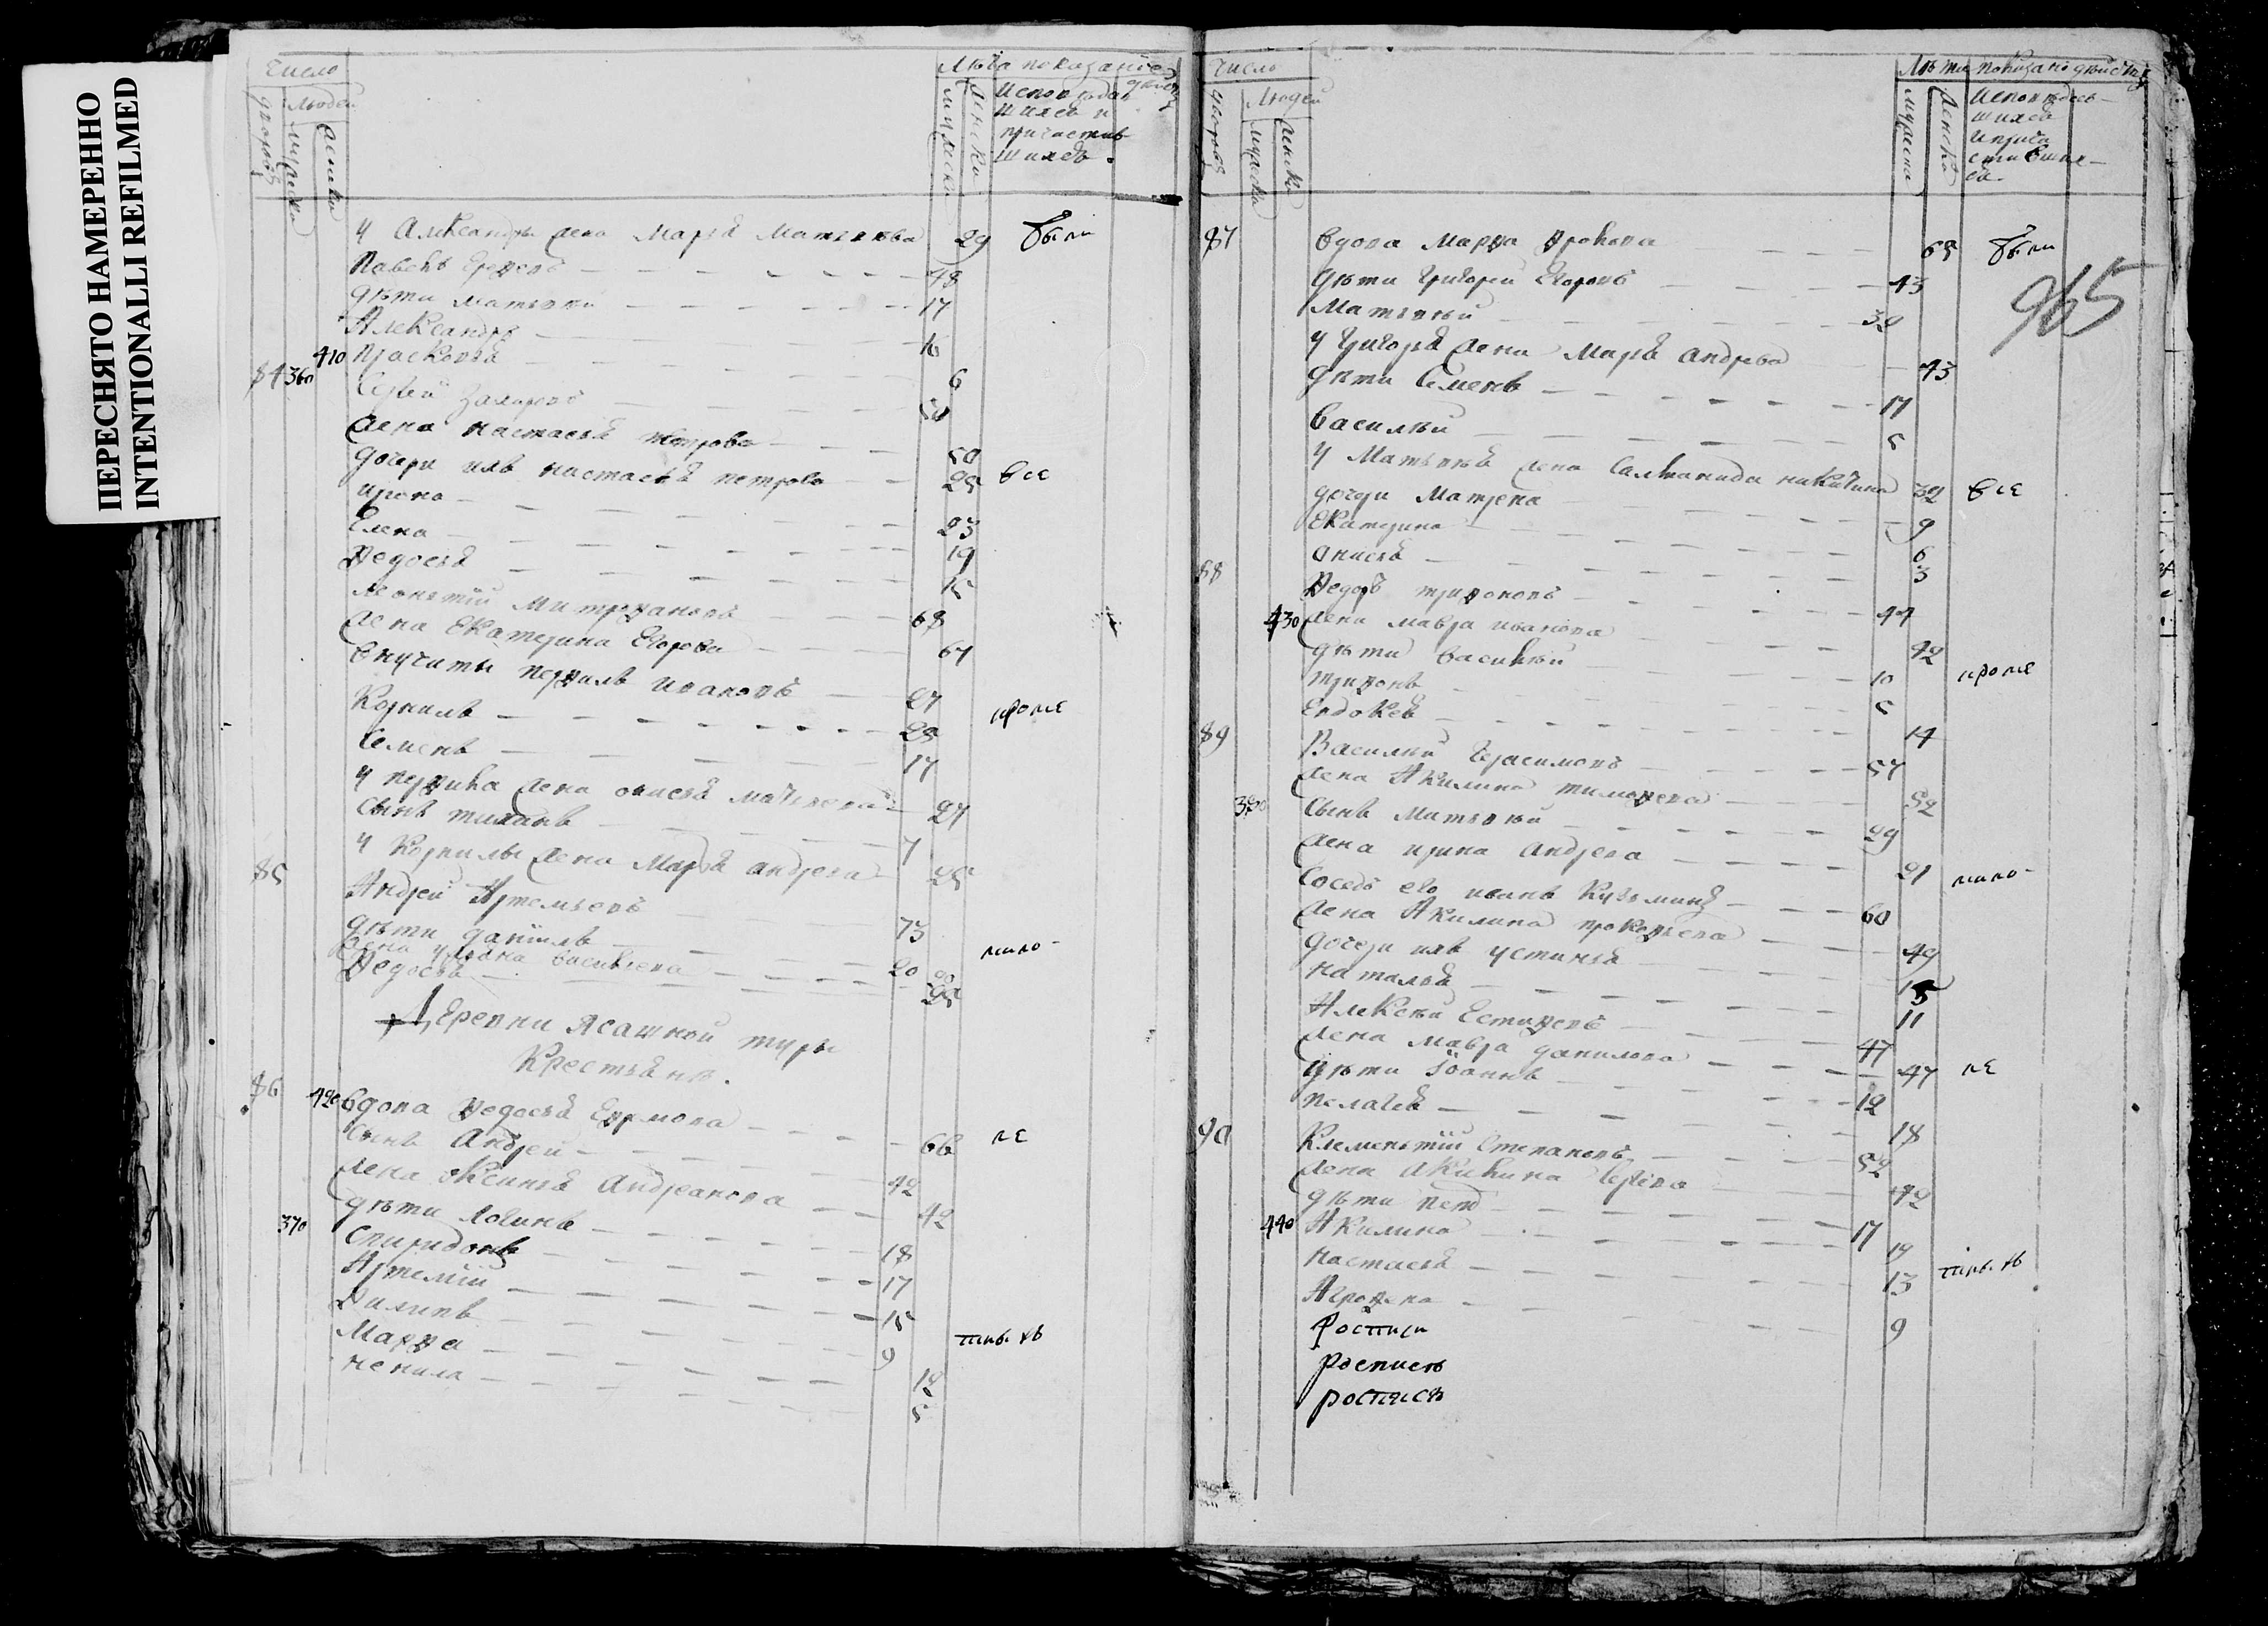 ПЕРЕСНЯТО НАМЕРЕННО
INTENTIONALLI REFILMED
число
людей
дворовъ
мужеска
женска
лѣта показание
мужеска
женска
исповѣдав
шихся и
причастив
шихся.
у Александры жена Марья Матвѣева 29 были
Павелъ 48
дѣти Матвѣй 17
Александръ 16
410 Прасковья 6
84 360 Сергѣй Захаровъ 50
жена Настасья Петрова 50
дочери ихъ Настасья Петрова 25 все
Ирина 23
Елена 19
Ѳедосья 15
Леонтїй Митрофановъ 68
жена Екатерина Егорова 67
внучаты Перфилъ Ивановъ 27
Корнилъ 25 кроме
Семенъ 17
у Перфила жена Анисья Матвѣева 27
сынъ Тихонъ 7
у Корнилы жена Марья Андреева 25
85 Андрей Артемьевъ 73
дѣти Данїилъ 20 мало-
жена Ульяна Васильева 20
Ѳедосья 25
Деревни Ясашной туры
Крестьянъ.
86 420 вдова Ѳедосья Ефимова 66 ле
сынъ Андрей 42
жена Оксинья Андреянова 42
дѣти Логинъ 18
370 Спиридонъ 17
Артемїй 15
Филипъ 9
Марфа 12
Ненила 5
число
людей
дворовъ
мужеска
женска
лѣта показано дѣйство
мужеска
женска
исповѣдав-
шихся
и прича
стивших-
ся.
87 вдова Марфа 65 были
965
дѣти Григорей Егоровъ 43
Матвѣй 39
у Григорья жена Марья Андрева 43
дѣти Семенъ 17
Василѣй 5
у Матвѣя жена Салманида Никитина 32 все
дочери Матрена 9
Екатерина 6
Анисья 3
88 Ѳедоръ Трифоновъ 44
430 жена Мавра Иванова 42
дѣти Василѣй 10 кроме
Трифонъ 5
Евдокея 14
89 Василѣй Герасимовъ 57
жена Акилина Тимофеева 52
380 сынъ Матвѣй 29
жена Ирина Андреева 21 мало-
соседъ его Иванъ Кузьминъ 60
жена Акилина Прокопьева 49
дочери ихъ Устинья 15
Наталья 11
Алексѣй Естифеевъ 47
жена Мавра Данилова 47 ле
дѣти Їоаннъ 12
Пелагея 18
90 Клементїй Степановъ 52
жена Акилина 42
дѣти Петр 17
440 Акилина 19
Настасья 13
Агрофена 9
Росписи
Роспись
роспись